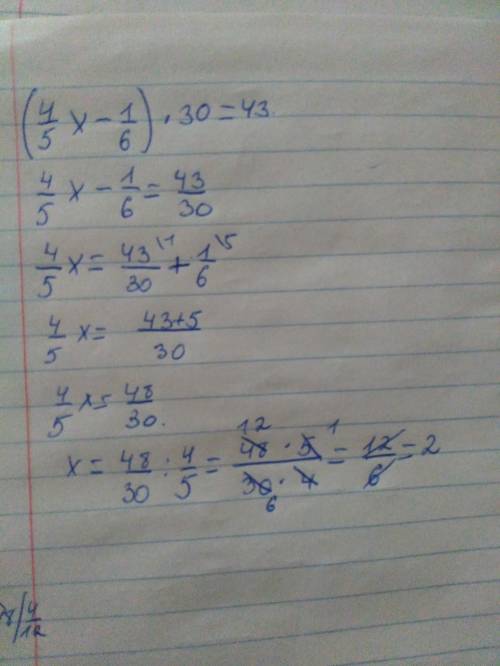 (4/5 x - 1/6) · 30 = 43.
4/5 x - 1/6 = 43/30
4/5 x = 43/30 \1 + 1/6 \5
4/5 x = 43+5/30
4/5 x = 48/30.
x = 48/30 : 4/5 = 48 12 · 5 1/30 6 · 4 = 12/6 = 2
/4/12